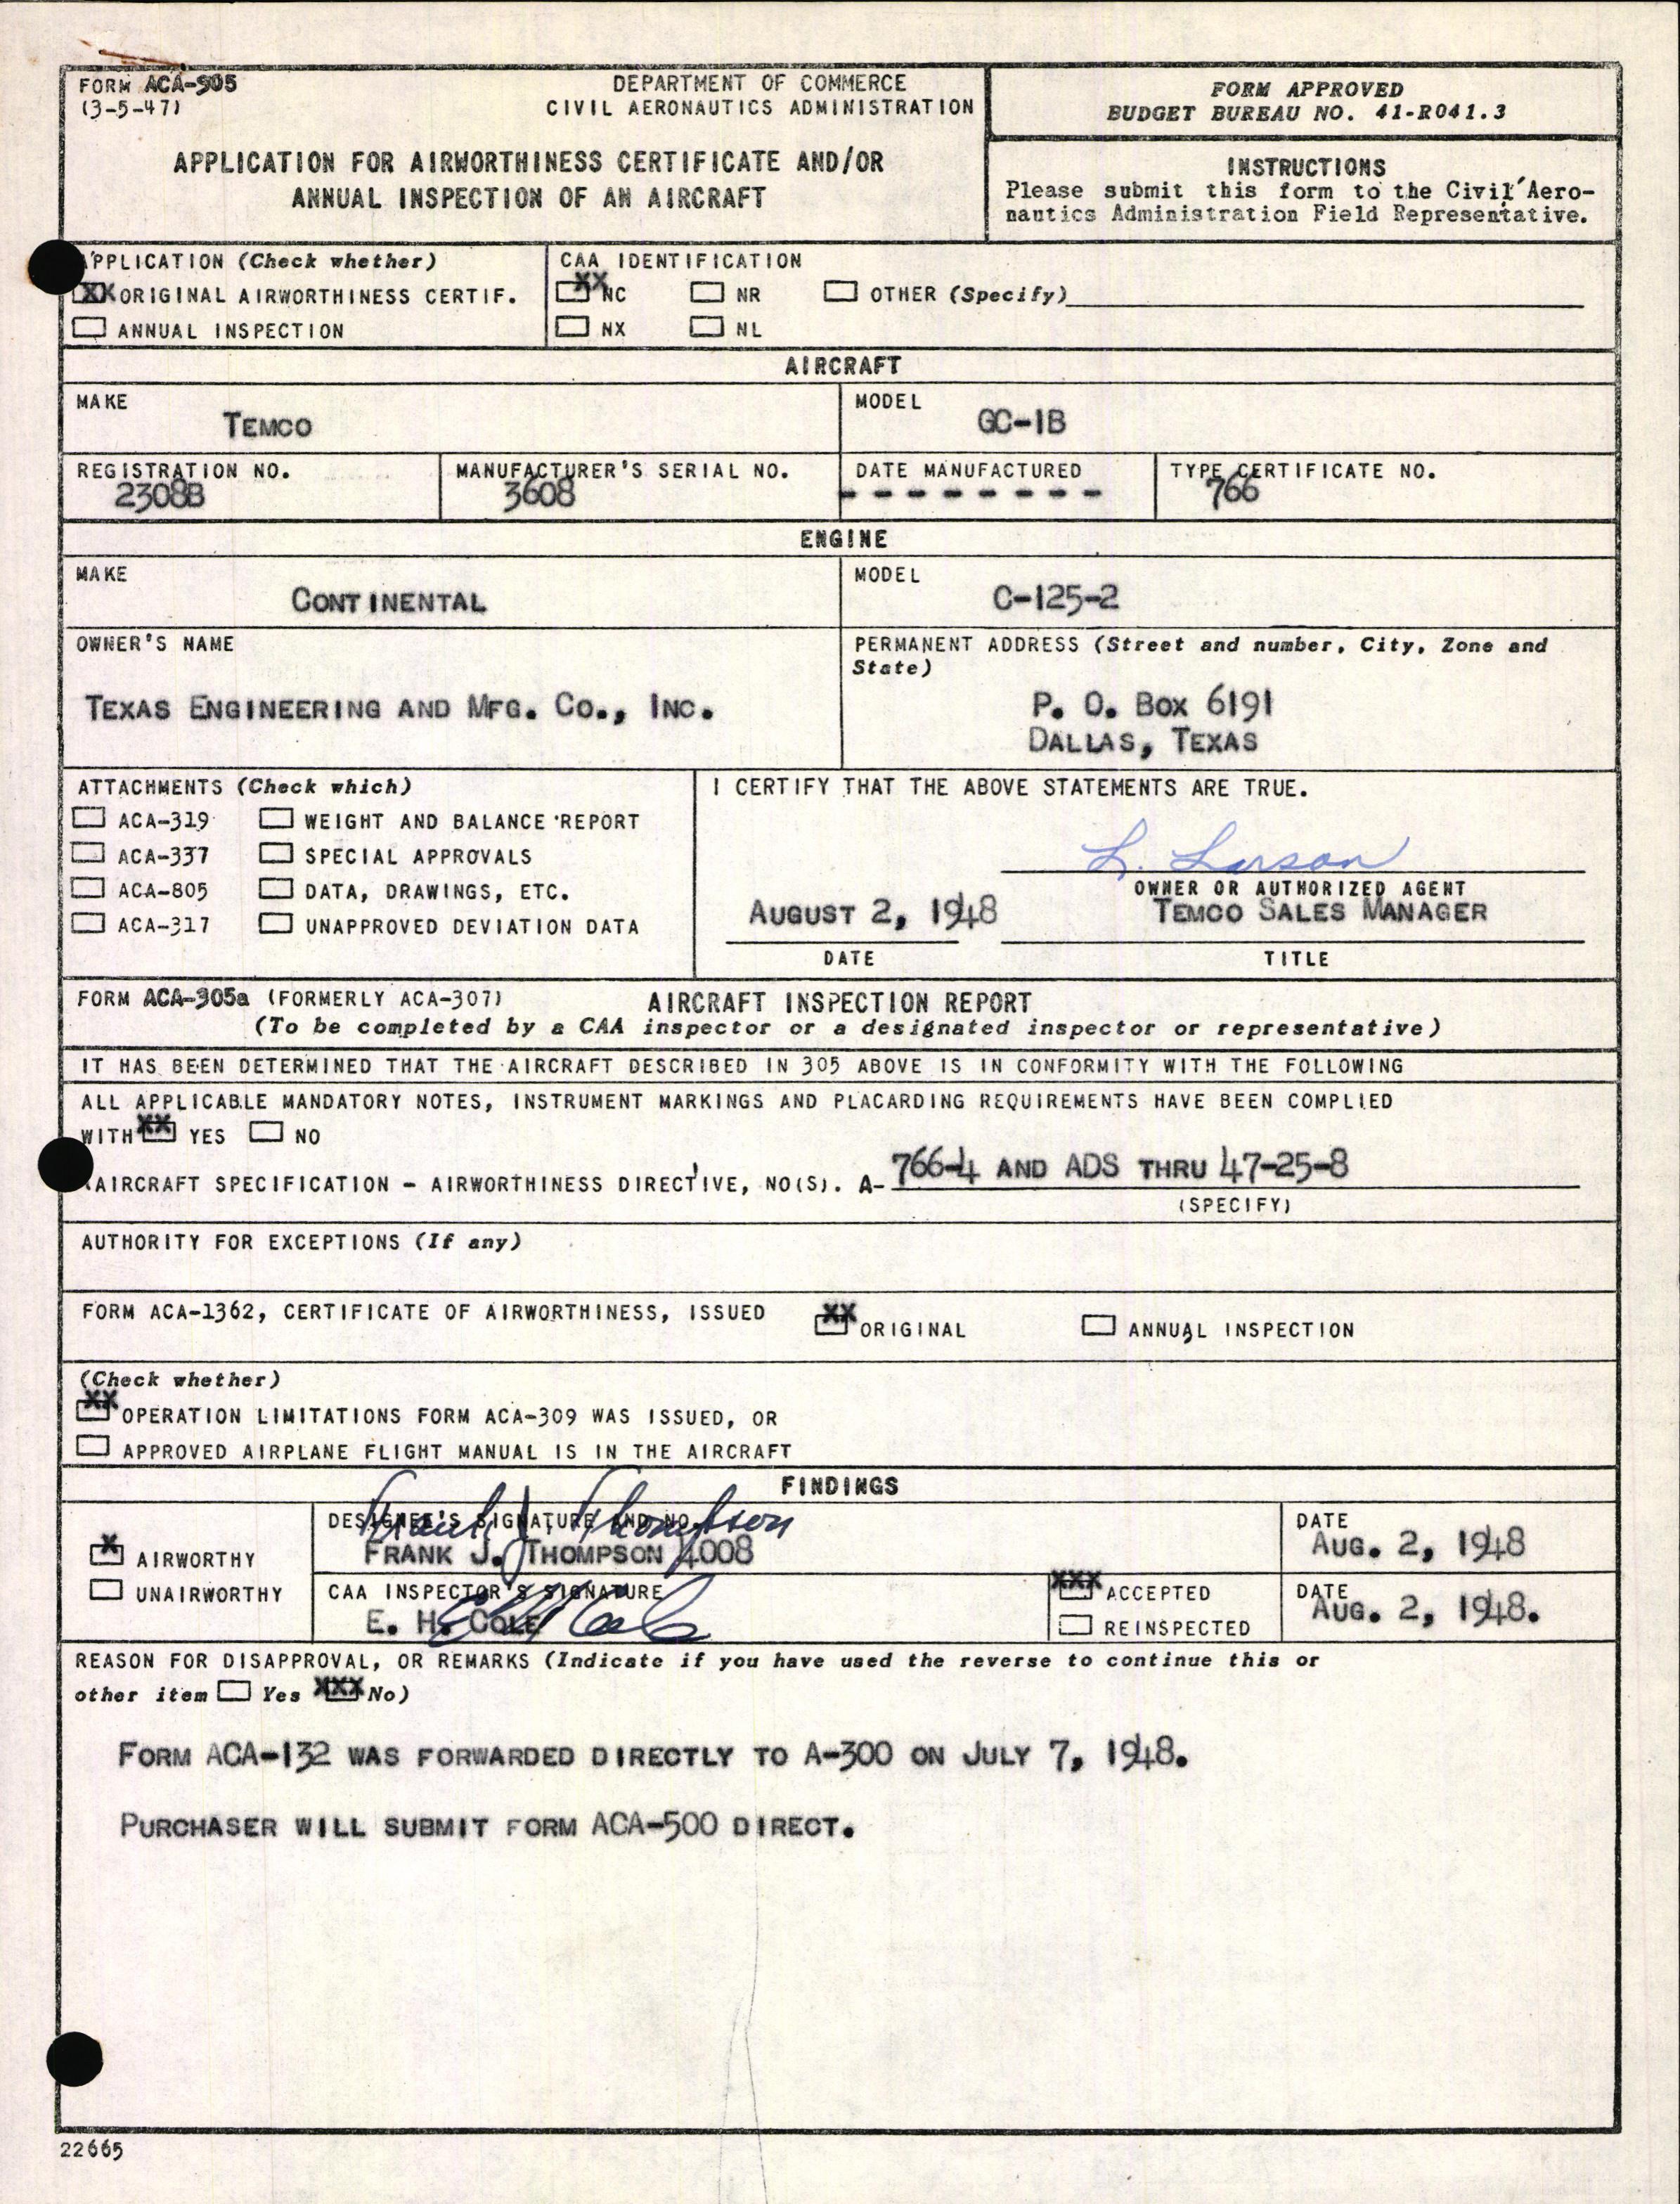 FORM ACA-305
(3-5-47)
DEPARTMENT OF COMMERCE
CIVIL AERONAUTICS ADMINISTRATION
APPLICATION FOR AIRWORTHINESS CERTIFICATE AND/OR
ANNUAL INSPECTION OF AN AIRCRAFT
FORM APPROVED
BUDGET BUREAU NO. 41-R041.3
INSTRUCTIONS
Please submit this form to the Civil Aero-
nautics Administration Field Representative.
APPLICATION (Check whether)
XX ORIGINAL AIRWORTHINESS CERTIF.
ANNUAL INSPECTION
CAA IDENTIFICATION
XX NC NR OTHER (Specify)
NX NL
AIRCRAFT
MAKE
TEMCO
MODEL
GC-1B
REGISTRATION NO.
2308B
MANUFACTURER'S SERIAL NO.
3608
DATE MANUFACTURED
- - - - - - - -
TYPE CERTIFICATE NO.
766
ENGINE
MAKE
CONTINENTAL
MODEL
C-125-2
OWNER'S NAME
TEXAS ENGINEERING AND MFG. CO., INC.
PERMANENT ADDRESS (Street and number, City, Zone and
State)
P. O. BOX 6191
DALLAS, TEXAS
ATTACHMENTS (Check which)
ACA-319 WEIGHT AND BALANCE REPORT
ACA-337 SPECIAL APPROVALS
ACA-805 DATA, DRAWINGS, ETC.
ACA-317 UNAPPROVED DEVIATION DATA
I CERTIFY THAT THE ABOVE STATEMENTS ARE TRUE.
L. Larson
OWNER OR AUTHORIZED AGENT
AUGUST 2, 1948 TEMCO SALES MANAGER
DATE TITLE
FORM ACA-305a (FORMERLY ACA-307) AIRCRAFT INSPECTION REPORT
(To be completed by a CAA inspector or a designated inspector or representative)
IT HAS BEEN DETERMINED THAT THE AIRCRAFT DESCRIBED IN 305 ABOVE IS IN CONFORMITY WITH THE FOLLOWING
ALL APPLICABLE MANDATORY NOTES, INSTRUMENT MARKINGS AND PLACARDING REQUIREMENTS HAVE BEEN COMPLIED
WITH XX YES NO
AIRCRAFT SPECIFICATION - AIRWORTHINESS DIRECTIVE, NO(S). A- 766-4 AND ADS THRU 47-25-8
(SPECIFY)
AUTHORITY FOR EXCEPTIONS (If any)
FORM ACA-1362, CERTIFICATE OF AIRWORTHINESS, ISSUED XX ORIGINAL ANNUAL INSPECTION
(Check whether)
XX OPERATION LIMITATIONS FORM ACA-309 WAS ISSUED, OR
APPROVED AIRPLANE FLIGHT MANUAL IS IN THE AIRCRAFT
FINDINGS
X AIRWORTHY
UNAIRWORTHY
DESIGNEE'S SIGNATURE AND NO.
Frank J. Thompson
FRANK J. THOMPSON 4008
DATE
AUG. 2, 1948
CAA INSPECTOR'S SIGNATURE
E. H. COLE
E H Cole
XXX ACCEPTED
REINSPECTED
DATE
AUG. 2, 1948.
REASON FOR DISAPPROVAL, OR REMARKS (Indicate if you have used the reverse to continue this or
other item Yes XXX No)
FORM ACA-132 WAS FORWARDED DIRECTLY TO A-300 ON JULY 7, 1948.
PURCHASER WILL SUBMIT FORM ACA-500 DIRECT.
22665